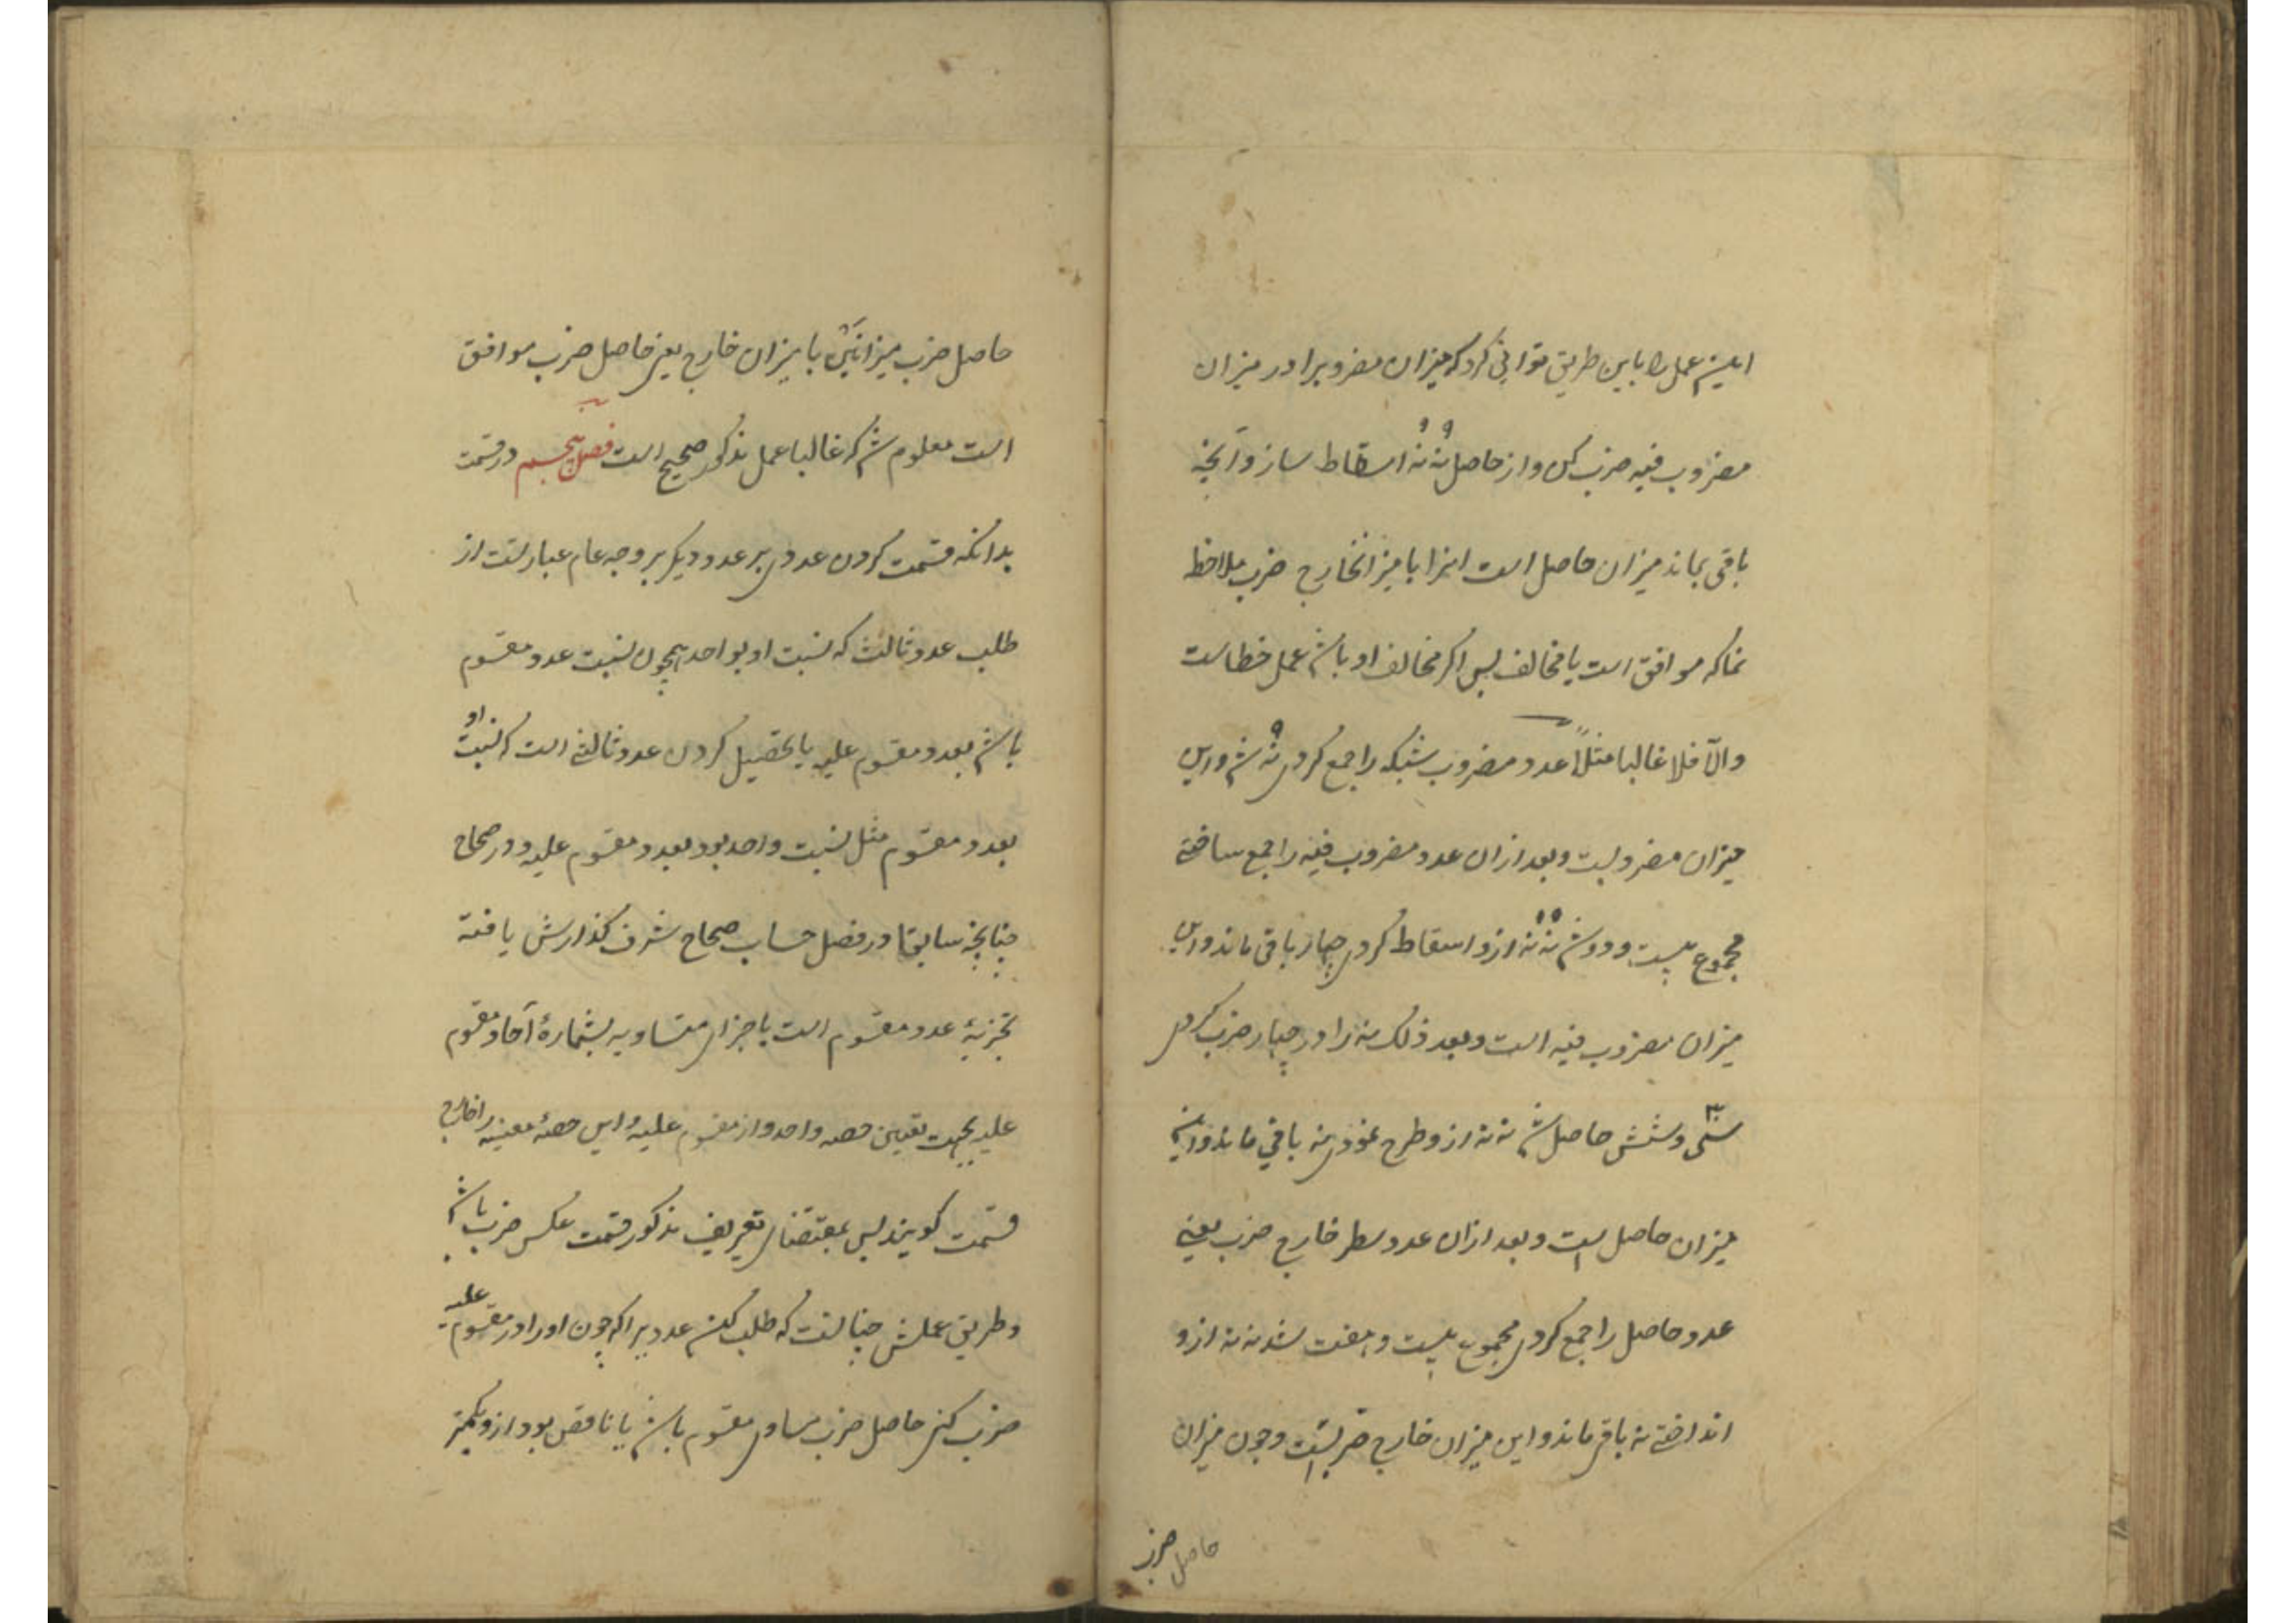 این عمل را باین طریق توانی کرد که میزان مضروبرا در میزان
مضروب فیه ضرب کن و از حاصل نه نه اسقاط ساز و آنچه
باقی بماند میزان حاصل است اینرا با میزانخارج ضرب ملاحظ
نما که موافق است یا مخالف پس اگر مخالف او باشد عمل خطاست
والّا فلا غالبا مثلاً عدد مضروب شبکه را جمع کردی نه شد و این
میزان مضروبست و بعد ازان عدد مضروب فیه را جمع ساختی
مجموع بیست و دو شد نه نه ازو اسقاط کردی چهار باقی ماند و این
میزان مضروب فیه است و بعد ذلک نه را در چهار ضرب کردی
سی و شش حاصل شد نه نه ازو طرح نمودی نه باقی ماند و این
میزان حاصل است و بعد ازان عدد سطر خارج ضرب یعنی
عدد حاصل را جمع کردی مجموع بیست و هفت شد نه نه ازو
انداختی نه باقی ماند و این میزان خارج ضربست و چون میزان
حاصل ضرب
حاصل ضرب میزانین با میزان خارج یعنی حاصل ضرب موافق
است معلوم شد که غالبا عمل مذکور صحیح است فصل پنجم در قسمت
بدانکه قسمت کردن عددی بر عدد دیگر بر وجه عام عبارتست از
طلب عدد ثالث که نسبت او بواحد همچون نسبت عدد مقسوم
باشد بعدد مقسوم علیه یا تحصیل کردن عدد ثالثی است که نسبت او
بعدد مقسوم مثل نسبت واحد بود بعدد مقسوم علیه و در صحاح
چنانچه سابقا در فصل حساب صحاح شرف گذارش یافته
تجزیهٔ عدد مقسوم است باجزای متساویه بشمارهٔ آحاد مقسوم
علیه بجهت تعیین حصه واحد از مقسوم علیه و این حصهٔ معینه را خارج
قسمت گویند پس بمقتضای تعریف مذکور قسمت عکس ضرب باشد
و طریق عملش چنانست که طلب کنی عددیرا که چون اورا در مقسوم علیه
ضرب کنی حاصل ضرب مساوی مقسوم باشد یا ناقص بود ازو بکمتر